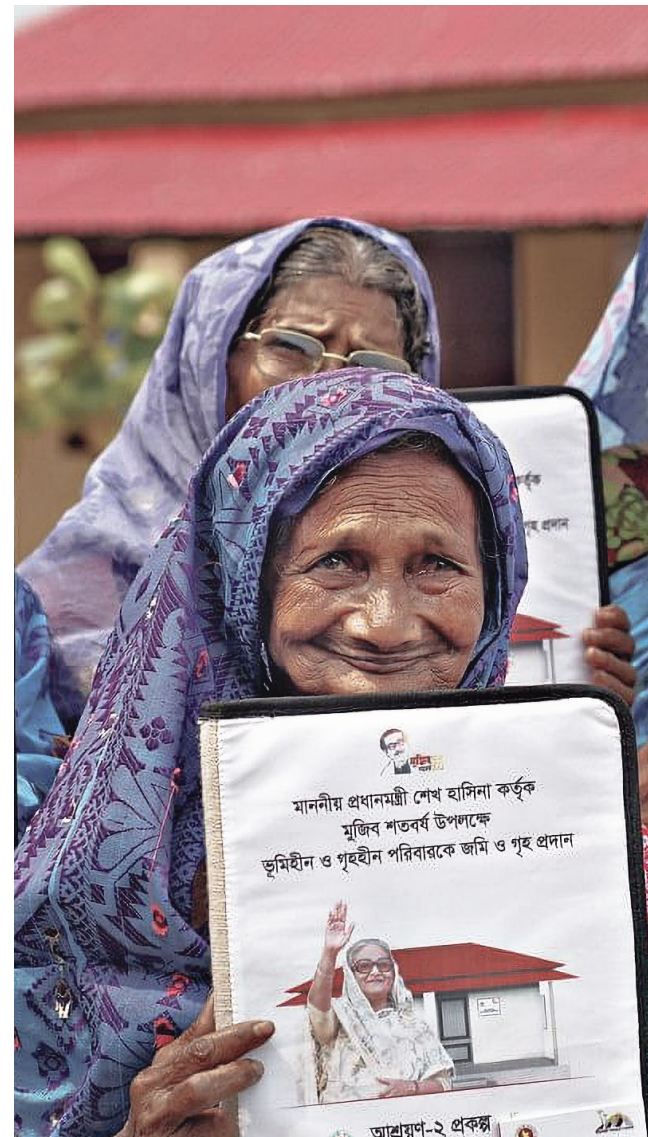 মাননীয় প্রধানমন্ত্রী শেখ হাসিনা কর্তৃক
মুজিব শতবর্ষ উপলক্ষে
ভূমিহীন ও গৃহহীন পরিবারকে জমি ও গৃহ প্রদান
আশ্রয়ণ-২ প্রকল্প
কর্তৃক
গৃহ প্রদান